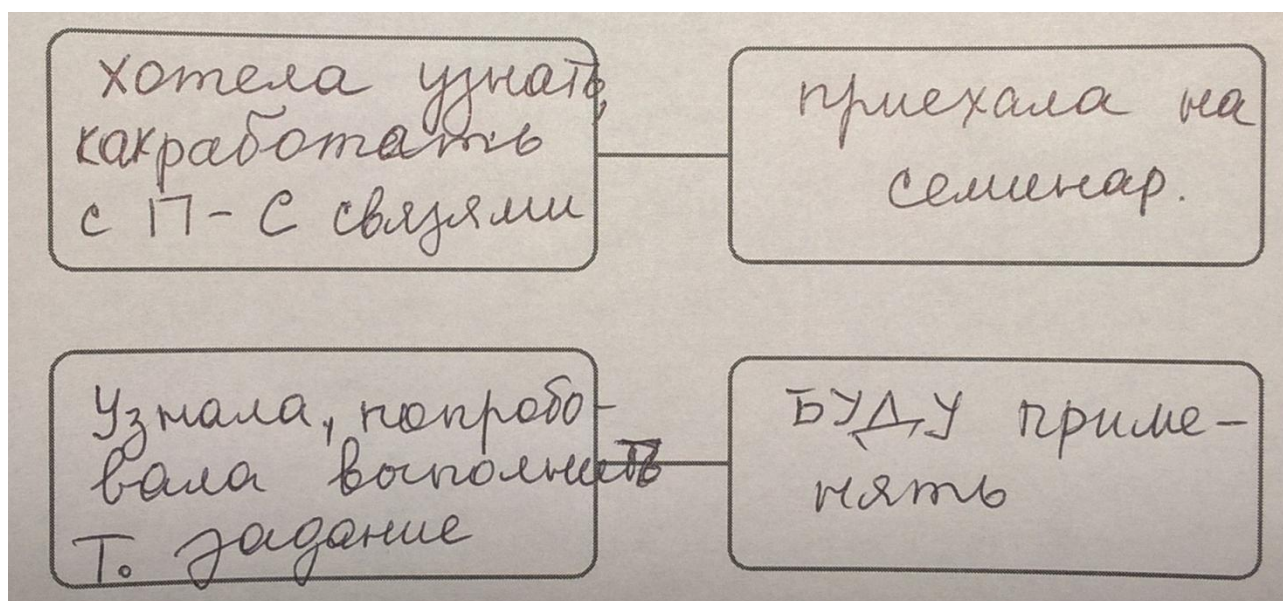 хотела узнать,
какработать
с П-С связями
приехала на
семинар.
Узнала, попробо-
вала выполнить
Т. задание
БУДУ приме-
нять